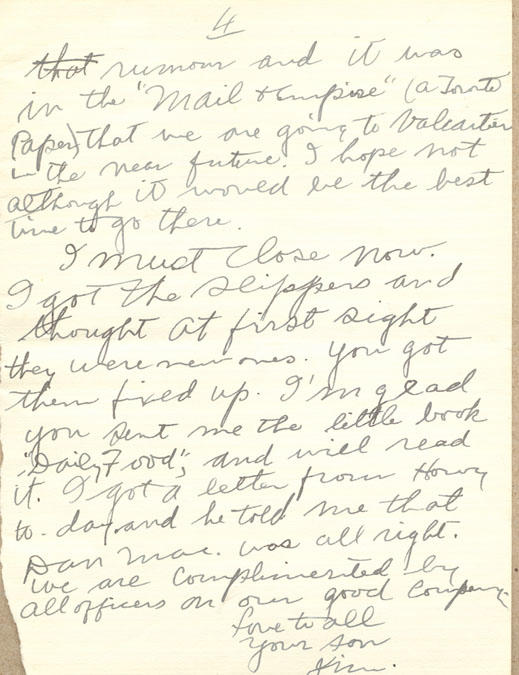 4
that rumour and it was
in the "Mail & Empire" (a Toronto
Paper) that we are going to Valcartier
in the near future. I hope not
although it would be the best
time to go there.
I must close now.
I got the slippers and
thought at first sight
they were new ones. You got
them fixed up. I'm glad
you sent me the little book
"Daily Food", and will read
it. I got a letter from Howry
to-day and he told me that
Dan Mac. was all right.
We are complimented by
all officers on our good Company
Love to all
Your son